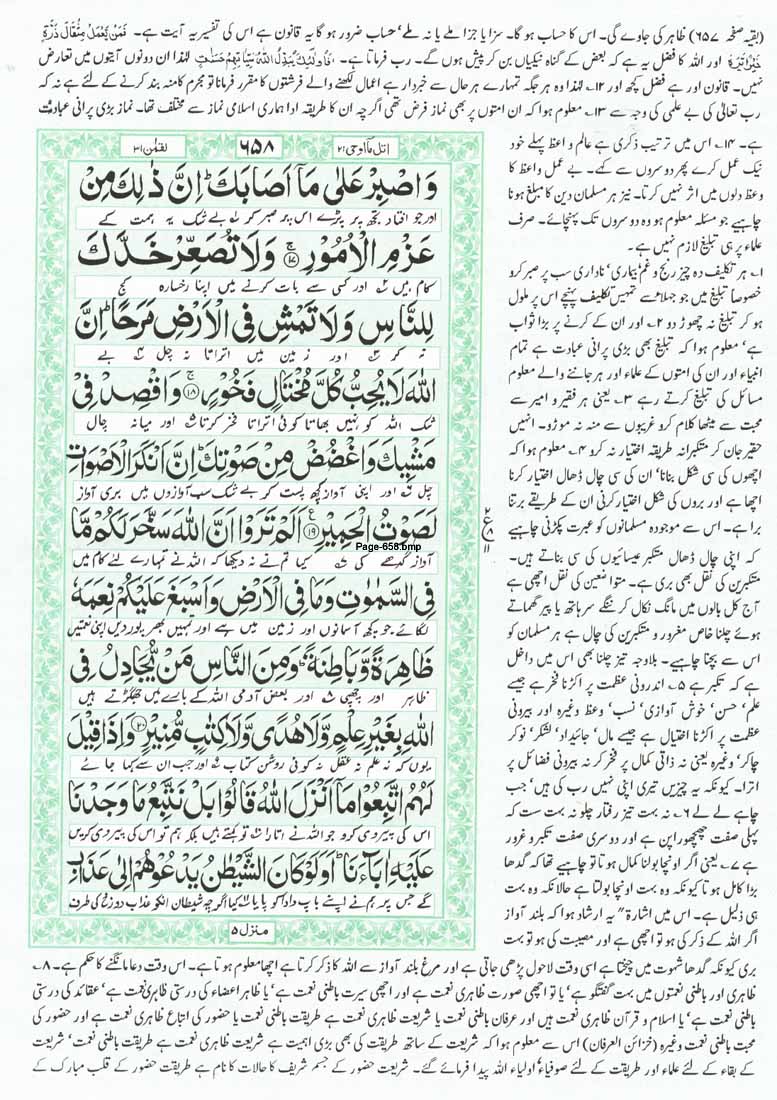 (بقیہ صفحہ ۶۵۷) ظاہر کی جاوے گی۔ اس کا حساب ہو گا۔ سزا یا جزا ملے یا نہ ملے، حساب ضرور ہو گا یہ قانون ہے اس کی تفسیر یہ آیت ہے۔ فَمَنْ يَّعْمَلْ مِثْقَالَ ذَرَّةٍ
اور اللہ کا فضل یہ ہے کہ بعض کے گناہ نیکیاں بن کر پیش ہوں گے۔ رب فرماتا ہے۔ لہٰذا ان دونوں آیتوں میں تعارض
نہیں۔ قانون اور ہے فضل کچھ اور ۱۲۔ لہٰذا وہ ہر جگہ تمہارے ہر حال سے خبردار ہے اعمال لکھنے والے فرشتوں کا مقرر فرمانا تو مجرم کا منہ بند کرنے کے لئے ہے نہ کہ
رب تعالیٰ کی بے علمی کی وجہ سے ۱۳۔ معلوم ہوا کہ ان امتوں پر بھی نماز فرض تھی اگرچہ ان کا طریقہ ادا ہماری اسلامی نماز سے مختلف تھا۔ نماز بڑی پرانی عبادت
ہے۔ ۱۴۔ اس میں ترتیب ذکری ہے عالم و واعظ پہلے خود
نیک عمل کرے پھر دوسروں سے کہے۔ بے عمل واعظ کا
وعظ دلوں میں اثر نہیں کرتا۔ نیز ہر مسلمان دین کا مبلغ ہونا
چاہیے جو مسئلہ معلوم ہو وہ دوسروں تک پہنچائے۔ صرف
علماء پر ہی تبلیغ لازم نہیں ہے۔
۱۔ ہر تکلیف دہ چیز رنج و غم بیماری، ناداری سب پر صبر کرو
خصوصاً تبلیغ میں جو جہلا سے تمہیں تکلیف پہنچے اس پر ملول
ہو کر تبلیغ نہ چھوڑ دو ۲۔ اور ان کے کرنے پر بڑا ثواب
ہے، معلوم ہوا کہ تبلیغ بھی بڑی پرانی عبادت ہے تمام
انبیاء اور ان کی امتوں کے علماء اور ہر جاننے والے معلوم
مسائل کی تبلیغ کرتے رہے ۳۔ یعنی ہر فقیر و امیر سے
محبت سے میٹھا کلام کرو غریبوں سے منہ نہ موڑو۔ انہیں
حقیر جان کر متکبرانہ طریقہ اختیار نہ کرو ۴۔ معلوم ہوا کہ
اچھوں کی سی شکل بنانا، ان کی سی چال ڈھال اختیار کرنا
اچھا ہے اور بروں کی شکل اختیار کرنی ان کے طریقے برتنا
برا ہے۔ اس سے موجودہ مسلمانوں کو عبرت پکڑنی چاہیے
کہ اپنی چال ڈھال متکبر عیسائیوں کی سی بناتے ہیں۔
متکبرین کی نقل بھی بری ہے۔ متواضعین کی نقل اچھی ہے
آج کل بالوں میں مانگ نکال کر ننگے سر ہاتھ یا پیر گھماتے
ہوئے چلنا خاص مغرور و متکبرین کی چال ہے ہر مسلمان کو
اس سے بچنا چاہیے۔ بلاوجہ تیز چلنا بھی اس میں داخل
ہے کہ تکبر ہے ۵۔ اندرونی عظمت پر اکڑنا فخر ہے جیسے
علم، حسن، خوش آوازی، نسب، وعظ وغیرہ اور بیرونی
عظمت پر اکڑنا اختیال ہے جیسے مال، جائیداد، لشکر، نوکر
چاکر، وغیرہ یعنی نہ ذاتی کمال پر فخر کر نہ بیرونی فضائل پر
اترا۔ کیونکہ یہ چیزیں تیری اپنی نہیں رب کی ہیں، جب
چاہے لے لے ۶۔ نہ بہت تیز رفتار چلو نہ بہت ست کہ
پہلی صفت چھچھوراپن ہے اور دوسری صفت تکبر و غرور
ہے ۷۔ یعنی اگر اونچا بولنا کمال ہوتا تو چاہیے تھا کہ گدھا
بڑا کامل ہوتا کیونکہ وہ بہت اونچا بولتا ہے حالانکہ وہ بہت
ہی ذلیل ہے۔ اس میں اشارۃً یہ ارشاد ہوا کہ بلند آواز
اگر اللہ کے ذکر کی ہو تو اچھی ہے اور مصیبت کی ہو تو بہت
اتل مااوحی ۲۱
۶۵۸
لقمٰن ۳۱
وَاصْبِرْ عَلٰى مَآ اَصَابَكَ ؕ اِنَّ ذٰلِكَ مِنْ
اور جو افتاد تجھ پر پڑے اس پر صبر کر بے شک یہ ہمت کے
عَزْمِ الْاُمُوْرِ ۚ﴿۱۷﴾ وَلَا تُصَعِّرْ خَدَّكَ
کام ہیں اور کسی سے بات کرنے میں اپنا رخسارہ کج
لِلنَّاسِ وَلَا تَمْشِ فِى الْاَرْضِ مَرَحًا ؕ اِنَّ
نہ کر اور زمین میں اتراتا نہ چل بے
اللّٰهَ لَا يُحِبُّ كُلَّ مُخْتَالٍ فَخُوْرٍ ۚ﴿۱۸﴾ وَاقْصِدْ فِىْ
شک اللہ کو نہیں بھاتا کوئی اتراتا فخر کرتا اور میانہ چال
مَشْيِكَ وَاغْضُضْ مِنْ صَوْتِكَ ؕ اِنَّ اَنْكَرَ الْاَصْوَاتِ
چل اور اپنی آواز کچھ پست کر بے شک سب آوازوں میں بری آواز
لَصَوْتُ الْحَمِيْرِ ﴿۱۹﴾ اَلَمْ تَرَوْا اَنَّ اللّٰهَ سَخَّرَ لَكُمْ مَّا
Page-658.bmp
آواز گدھے کی کیا تم نے نہ دیکھا کہ اللہ نے تمہارے لئے کام میں
فِى السَّمٰوٰتِ وَمَا فِى الْاَرْضِ وَاَسْبَغَ عَلَيْكُمْ نِعَمَهٗ
لگائے جو کچھ آسمانوں اور زمین میں ہے اور تمہیں بھرپور دیں اپنی نعمتیں
ظَاهِرَةً وَّبَاطِنَةً ؕ وَمِنَ النَّاسِ مَنْ يُّجَادِلُ فِى
ظاہر اور چھپی اور بعض آدمی اللہ کے بارے میں جھگڑتے ہیں
اللّٰهِ بِغَيْرِ عِلْمٍ وَّلَا هُدًى وَّلَا كِتٰبٍ مُّنِيْرٍ ﴿۲۰﴾ وَاِذَا قِيْلَ
یوں کہ نہ علم نہ عقل نہ کوئی روشن کتاب اور جب ان سے کہا جائے
لَهُمُ اتَّبِعُوْا مَآ اَنْزَلَ اللّٰهُ قَالُوْا بَلْ نَتَّبِعُ مَا وَجَدْنَا
اس کی پیروی کرو جو اللہ نے اتارا تو کہتے ہیں بلکہ ہم تو اس کی پیروی کریں
عَلَيْهِ اٰبَآءَنَا ؕ اَوَلَوْ كَانَ الشَّيْطٰنُ يَدْعُوْهُمْ اِلٰى عَذَابِ
گے جس پر ہم نے اپنے باپ دادا کو پایا کیا اگرچہ شیطان انکو عذاب دوزخ کی طرف
منزل ۵
بری کیونکہ گدھا شہوت میں چیختا ہے اسی وقت لاحول پڑھی جاتی ہے اور مرغ بلند آواز سے اللہ کا ذکر کرتا ہے اچھا معلوم ہوتا ہے۔ اس وقت دعا مانگنے کا حکم ہے۔ ۸۔
ظاہری اور باطنی نعمتوں میں بہت گفتگو ہے، یا تو اچھی صورت ظاہری نعمت ہے اور اچھی سیرت باطنی نعمت ہے، یا ظاہر اعضاء کی درستی ظاہری نعمت ہے، عقائد کی درستی
باطنی نعمت ہے، یا اسلام و قرآن ظاہری نعمت ہیں اور عرفان باطنی نعمت یا شریعت ظاہری نعمت ہے طریقت باطنی نعمت یا حضور کی اتباع ظاہری نعمت ہے اور حضور کی
محبت باطنی نعمت وغیرہ (خزائن العرفان) اس سے معلوم ہوا کہ شریعت کے ساتھ طریقت کی بھی بڑی اہمیت ہے شریعت ظاہری نعمت ہے طریقت باطنی نعمت، شریعت
کے بقاء کے لئے علماء اور طریقت کے لئے صوفیاء، اولیاء اللہ پیدا فرمائے گئے۔ شریعت حضور کے جسم شریف کا حالات کا نام ہے طریقت حضور کے قلب مبارک کے